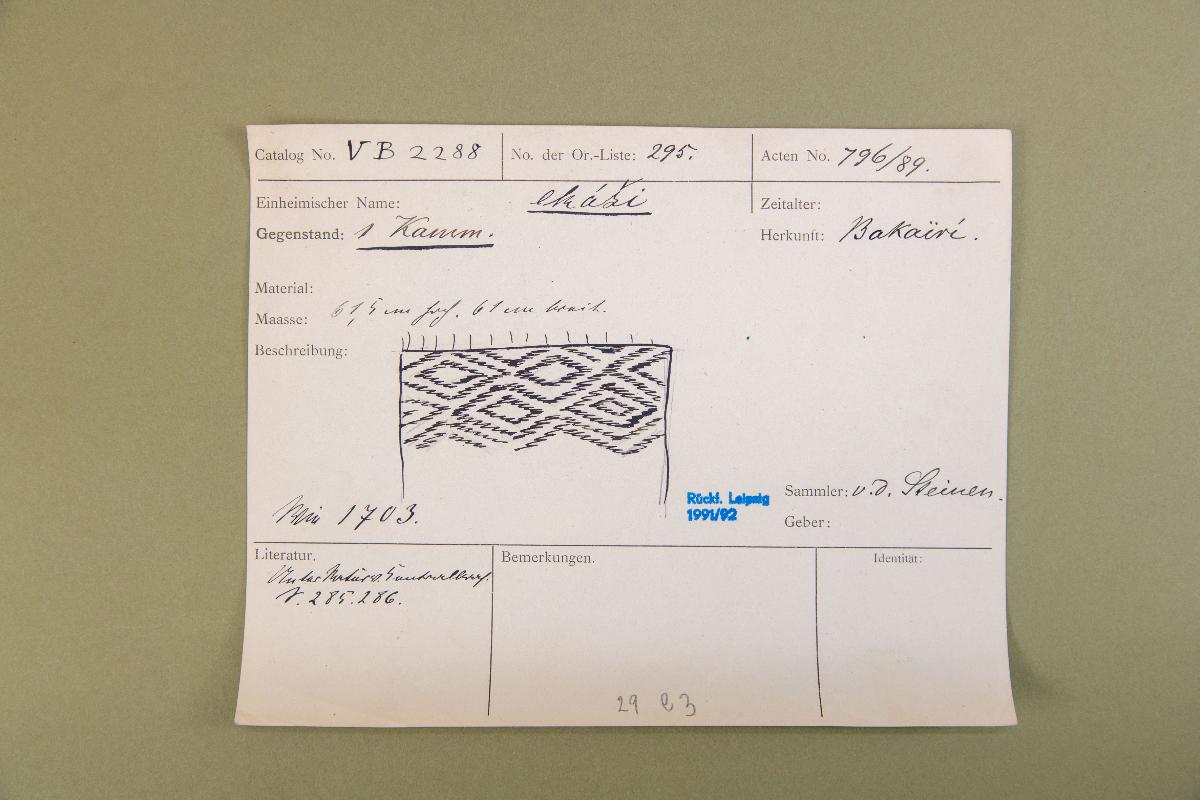 Catalog No. VB 2288
No. der Or.-Liste: 295.
Acten No. 796/89.
Einheimischer Name: ekáži
Gegenstand: 1 Kamm.
Zeitalter:
Herkunft: Bakaïrí.
Material:
Maasse: 61,5 cm hoch. 61 cm breit.
Beschreibung:
1703.
Rückf. Leipzig
1991/92
Sammler: v. d. Steinen.
Geber:
Literatur.
Unter
S. 285. 286.
Bemerkungen.
Identität:
29 e 3